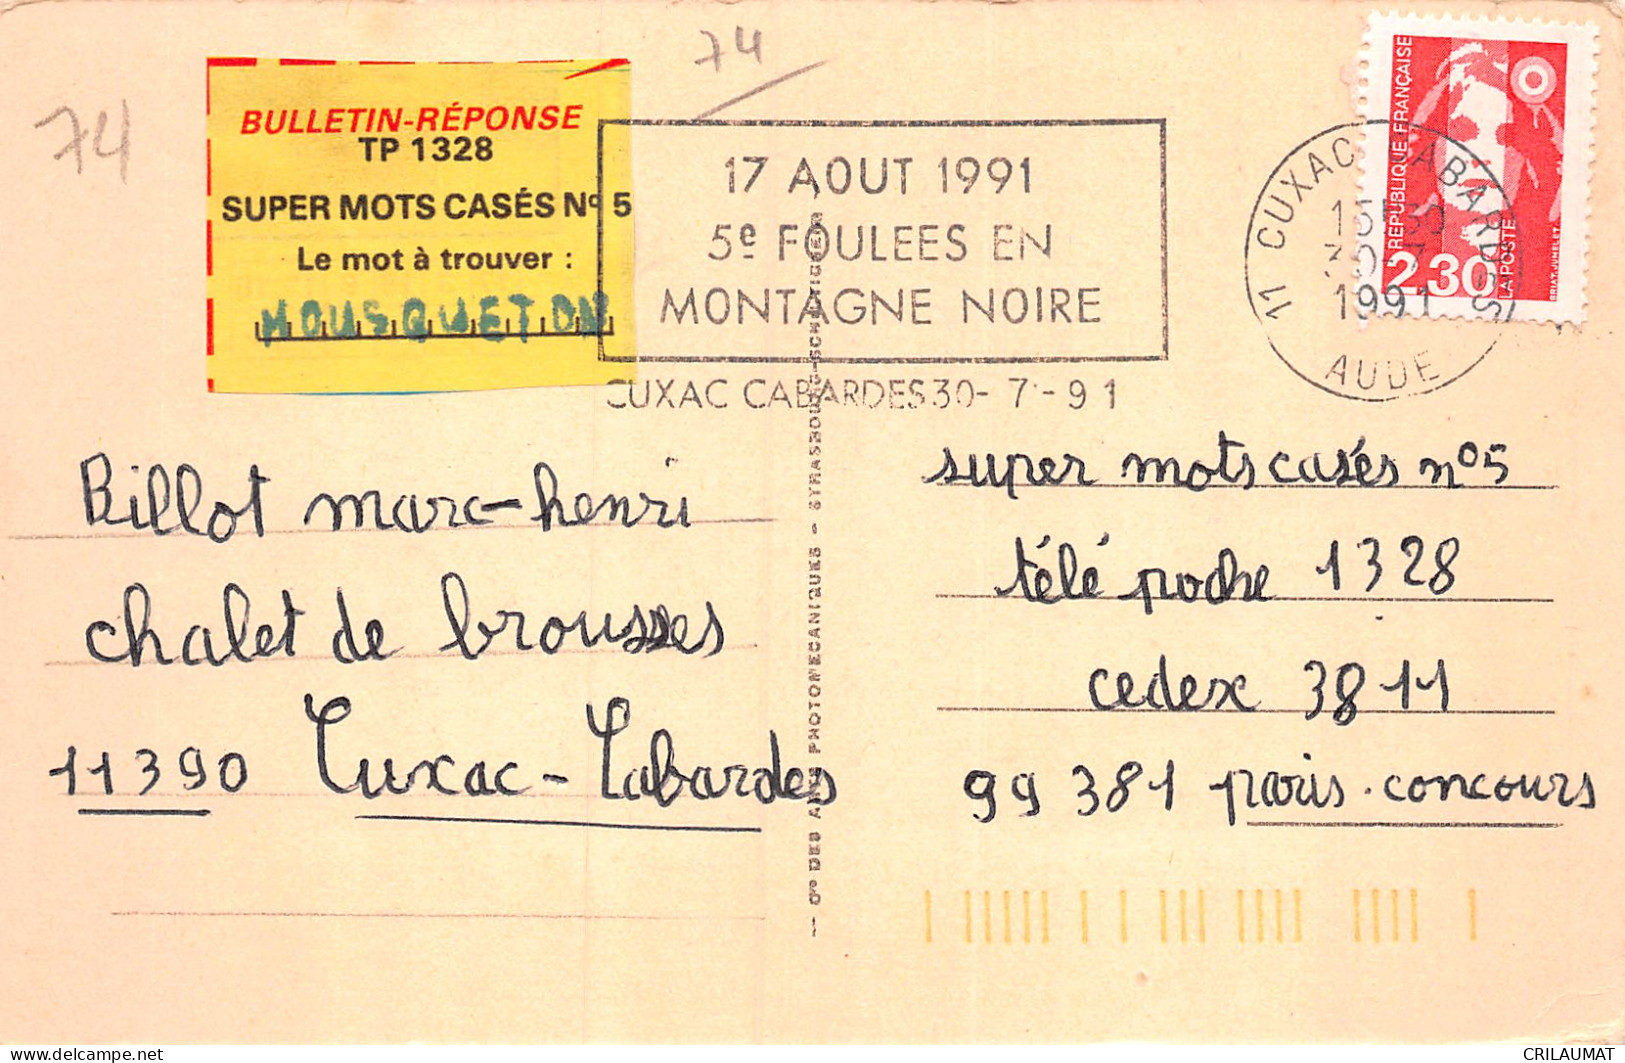 74
74
BULLETIN-RÉPONSE
TP 1328
SUPER MOTS CASÉS Nº 5
Le mot à trouver :
MOUSQUETON
17 AOUT 1991
5e FOULEES EN
MONTAGNE NOIRE
CUXAC CABARDES 30-7-91
11 CUXAC CABARDES
30-7
1991
AUDE
REPUBLIQUE FRANÇAISE
2,30
LA POSTE
BRIAT-JUMELET
Billot marc-henri
chalet de brousses
11390 Cuxac-Cabardes
Cie DES ARTS PHOTOMECANIQUES - STRASBOURG-SCHILTIGHEIM
super mots casés nº5
télé poche 1328
cedex 3811
99 381 paris.concours
CRILAUMAT